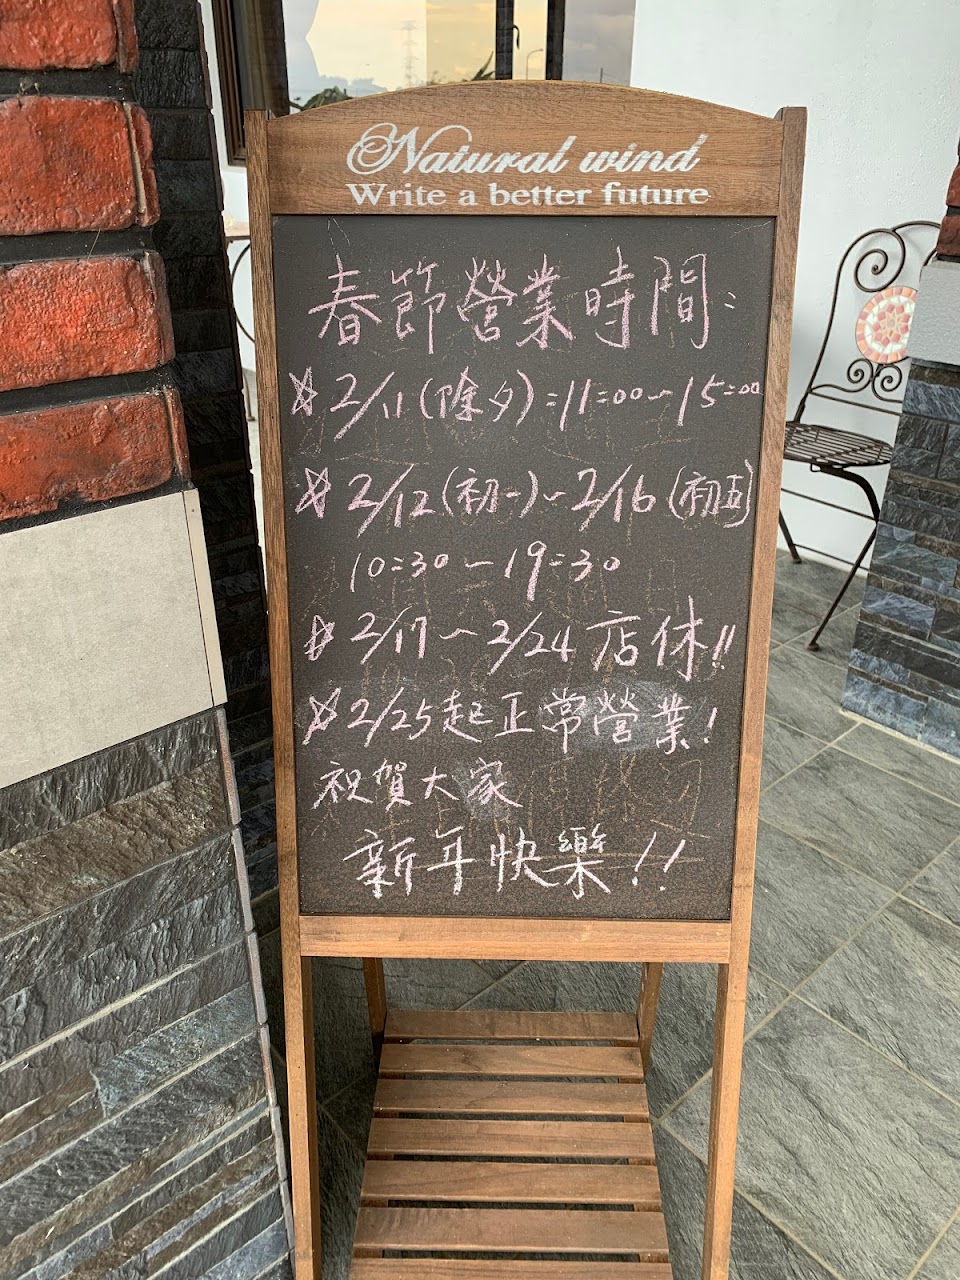 Natural wind
Write a better future
春節營業時間:
☆2/11(除夕):11:00~15:00
☆2/12(初一)~2/16(初五)
10:30~19:30
☆2/17~2/24店休!!
☆2/25起正常營業!
祝賀大家
新年快樂!!